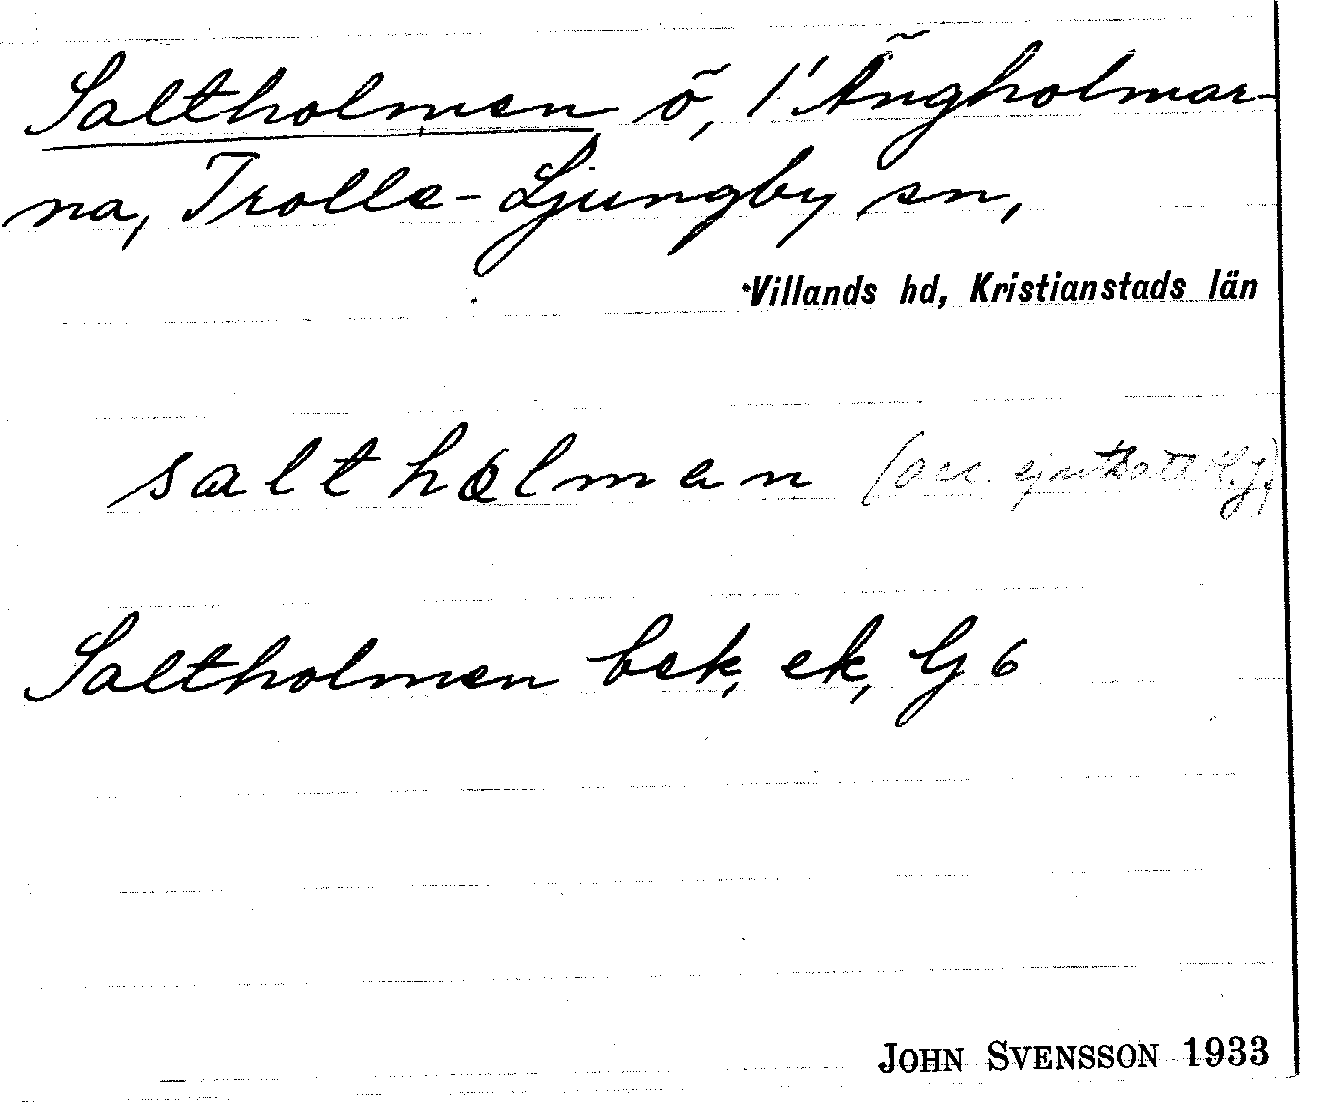 Saltholmen ö, i Ängholmar-
na, Trolle-Ljungby sn,
Villands hd, Kristianstads län
saltholman
Saltholmen bek, ek, Lj 6
JOHN SVENSSON 1933